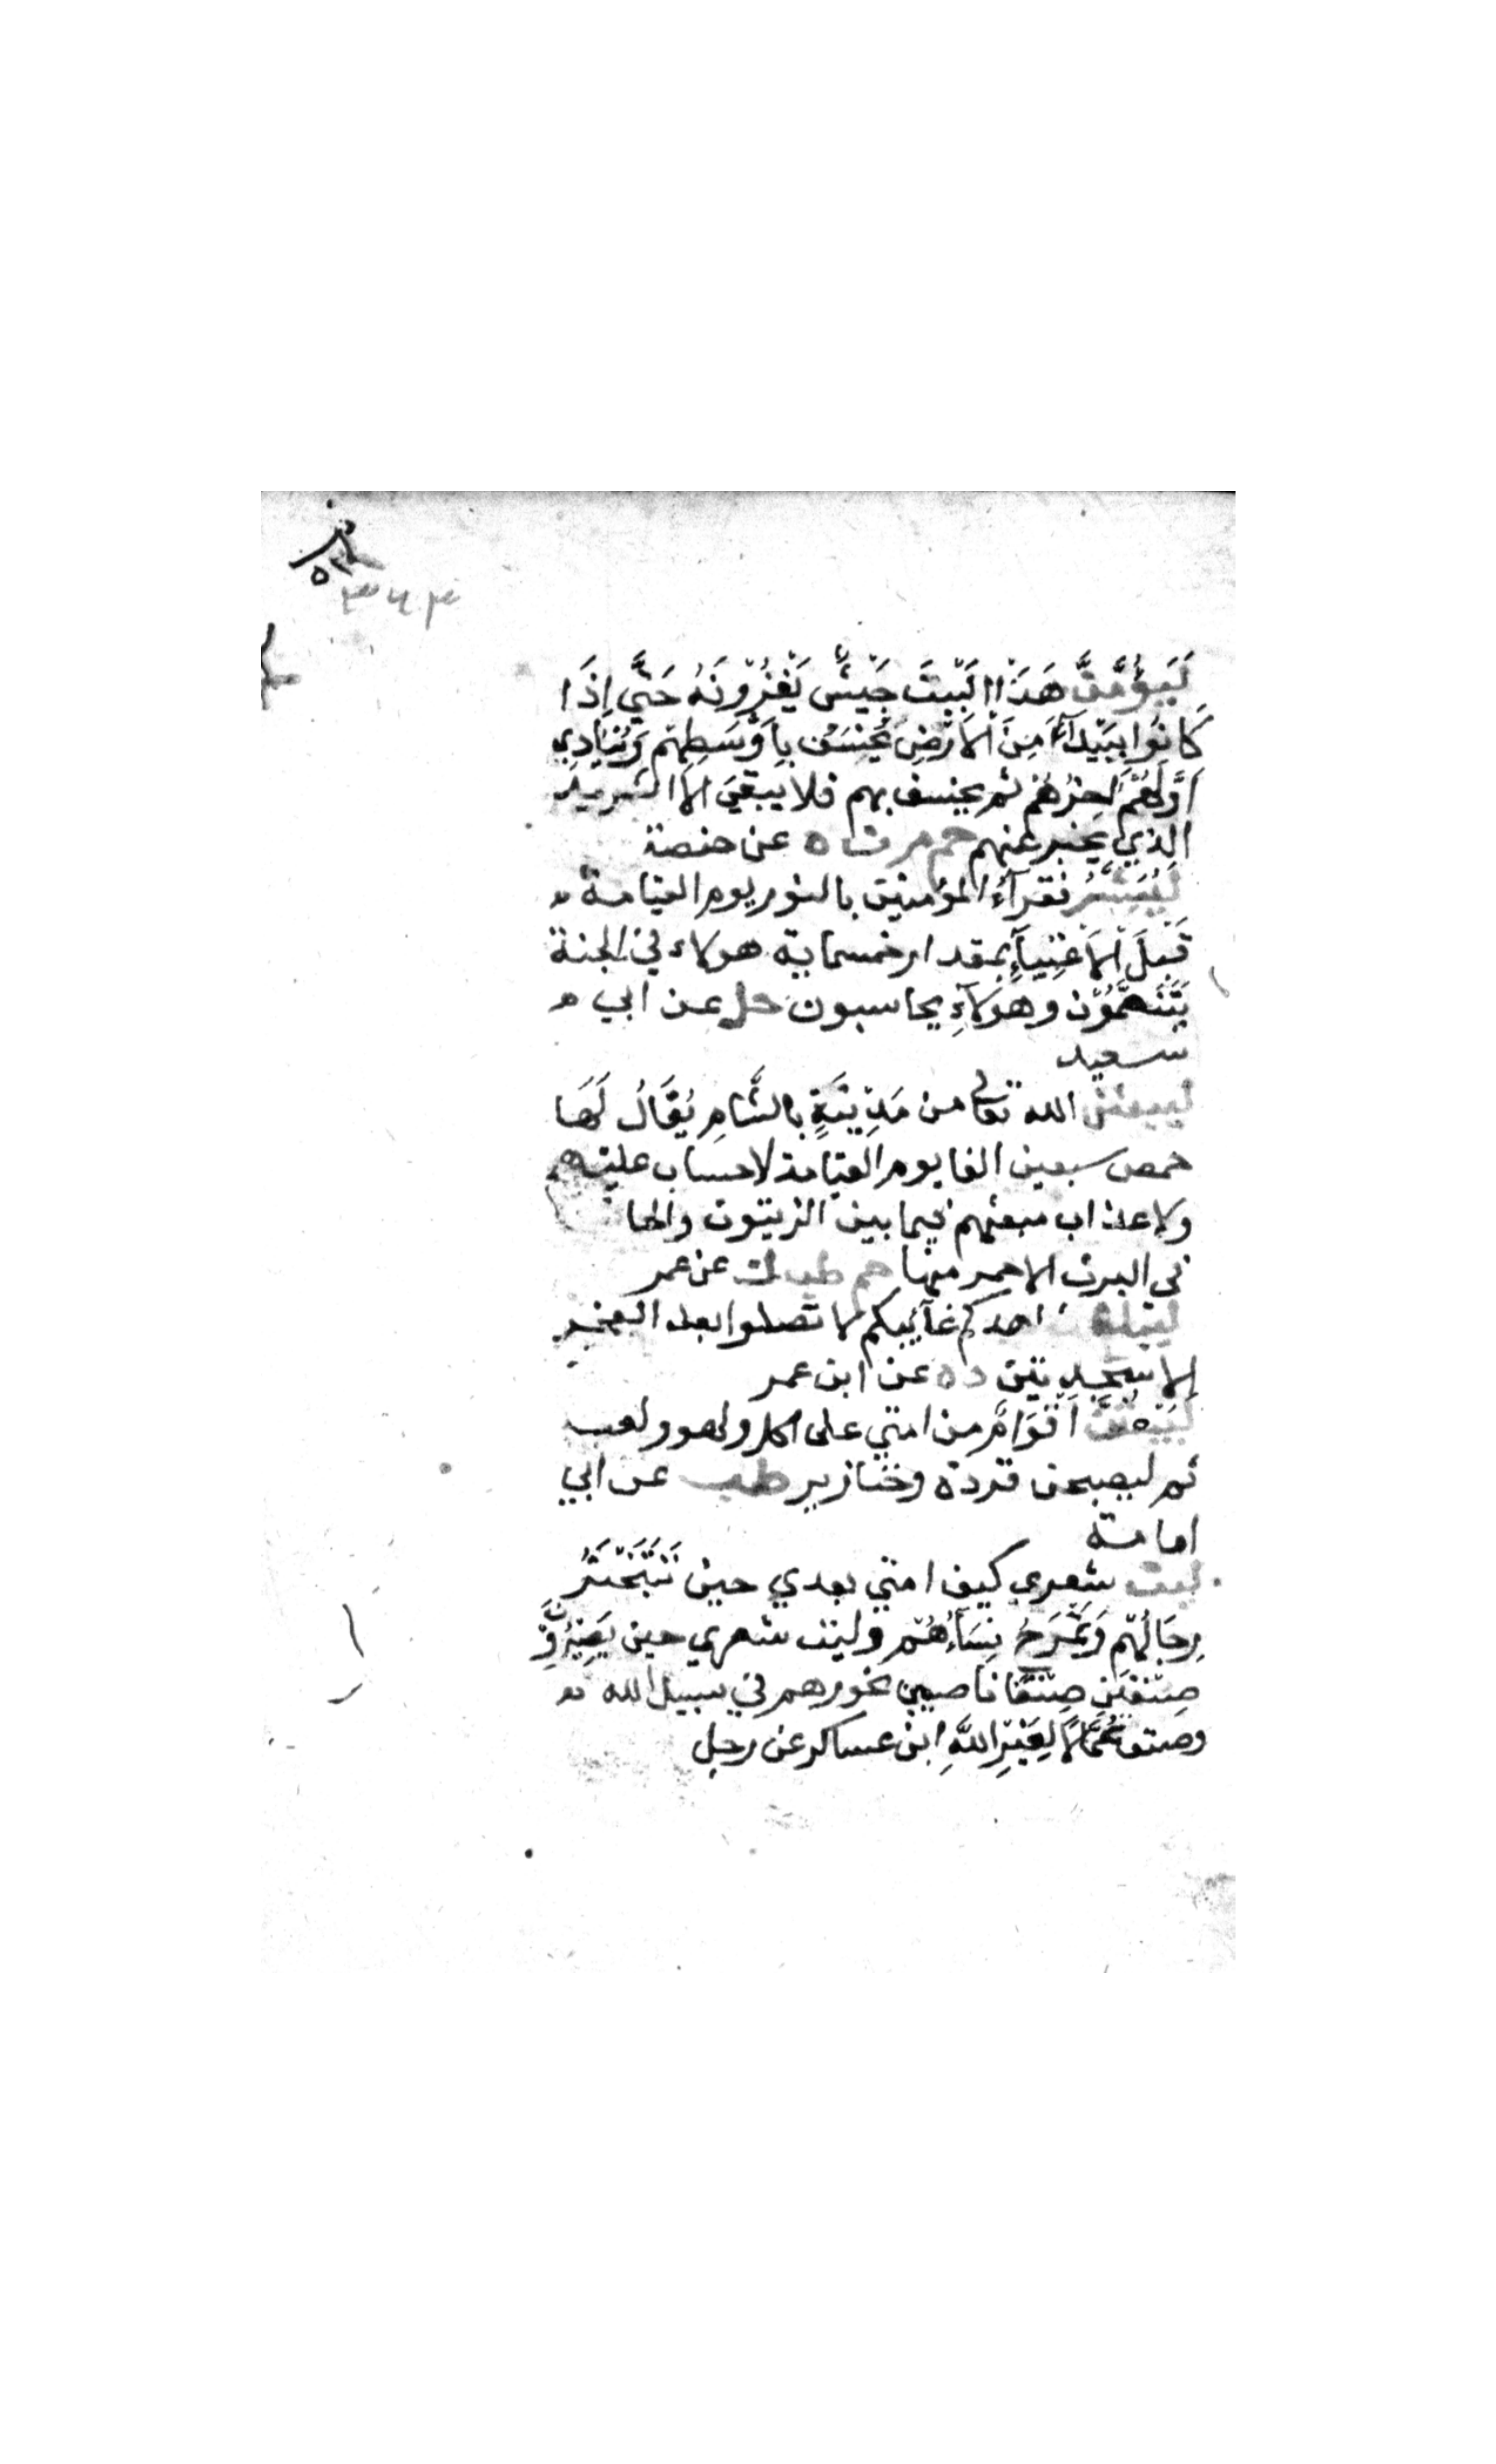 ٣٦٣
لَيَؤُمَّنَّ هَذَا الْبَيْتَ جَيْشٌ يَغْزُونَهُ حَتَّى إِذَا
كَانُوا بِبَيْدَآءَ مِنَ الْاَرْضِ يُخْسَفُ بِاَوْسَطِهِمْ وَيُنَادِي
اَوَّلُهُمْ اٰخِرُهُمْ ثم يخسف بهم فلا يبقى الا الشريد
الذي يخبر عنهم حم م ن ه عن حفصة
لَيُبَشَّرُ فقرآءُ المؤمنين بالنور يوم القيامة
قَبْلَ الْاَغْنِيآءِ بمقدار خمسماية هولاء في الجنة
يَتَنَعَّمُوْنَ وهولآءِ يحاسبون حل عن ابي
سعيد
ليبعثن الله تعالى من مَدِيْنَةٍ بالشَّامِ يُقَالُ لَهَا
حمص سبعين الفا يوم القيامة لا حساب عليهم
ولا عذاب مبعثهم فيما بين الزيتون والحا
في البرث الاحمر منها حم طب ك عن عمر
ليبلغ احدكم غآئبكم لا تصلوا بعد الفجر
الا سَجْدَتين د ه عن ابن عمر
لَيَبِيْتَنَّ اَقْوَامٌ من امتي على اكل ولهو ولعب
ثم ليصبحن قردة وخنازير طب عن ابي
امامة
ليت شعري كيف امتي بعدي حين تَتَبَخْتَرُ
رِجَالُهُمْ وَتَمْرَحُ نِسَآءُهُمْ وليت شعري حين يَصِيْرُوْنَ
صِنْفَيْنِ صِنْفًا ناصبين نحورهم في سبيل الله
وصنفا عُمَّالًا لِغَيْرِ اللَّهِ ابن عساكر عن رجل